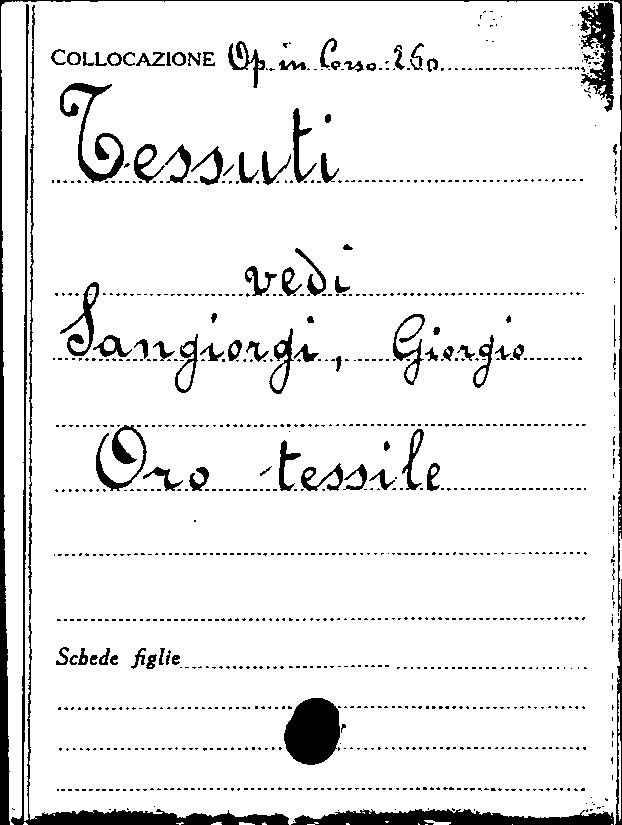 COLLOCAZIONE Op. in Corso. 260
Tessuti
vedi
Sangiorgi, Giorgio
Oro tessile
Schede figlie